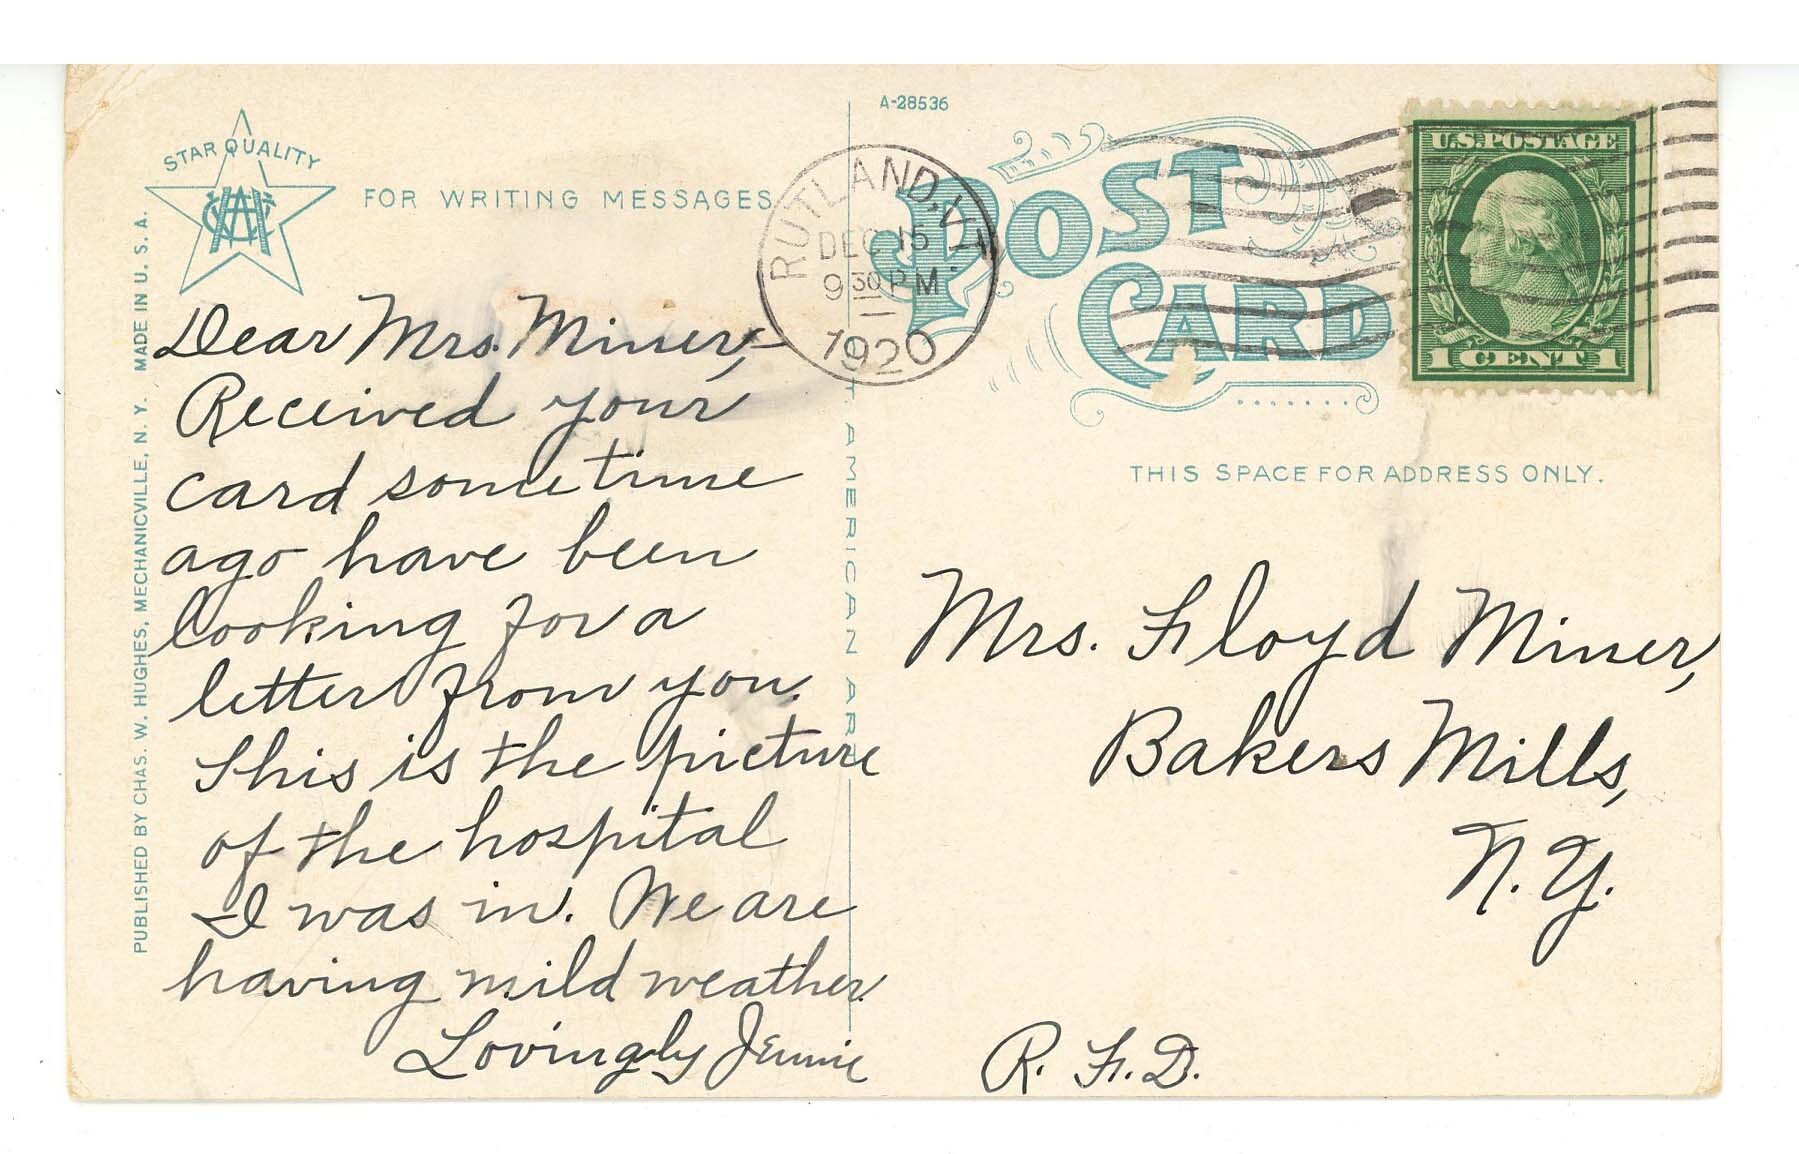 A-28536
STAR QUALITY
FOR WRITING MESSAGES
POST
CARD
RUTLAND, VT.
DEC 15
9 30 P M
1920
U.S. POSTAGE
1 CENT 1
THIS SPACE FOR ADDRESS ONLY.
PUBLISHED BY CHAS. W. HUGHES, MECHANICVILLE, N. Y. MADE IN U. S. A.
AMERICAN ART
Dear Mrs. Miner,-
Received your
card sometime
ago have been
looking for a
letter from you.
This is the picture
of the hospital
I was in. We are
having mild weather.
Lovingly Jennie
Mrs. Floyd Miner,
Bakers Mills,
N. Y.
R. F. D.